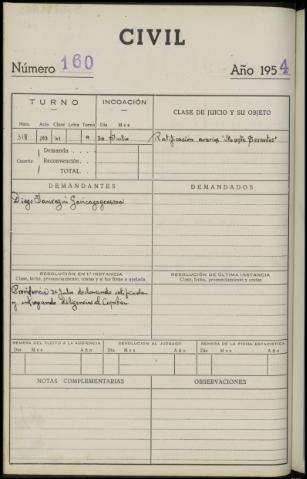 CIVIL
Número 160 Año 1954
TURNO INCOACIÓN CLASE DE JUICIO Y SU OBJETO
Núm. Acta Clase Letra Turno Día Mes
318 41 9 30 Julio Ratificación averías
Cuantía Demanda
Reconvención.
TOTAL.
DEMANDANTES DEMANDADOS
Diego
RESOLUCIÓN EN 1.ª INSTANCIA RESOLUCIÓN DE ÚLTIMA INSTANCIA
Clase, fecha, pronunciamiento, costas y si fue firme o apelada Clase, fecha, pronunciamiento y costas
Providencia 30 Julio declarando ratificada
y entregando diligencias al Capitán
REMESA DEL PLEITO A LA AUDIENCIA DEVOLUCIÓN AL JUZGADO REMESA DE LA FICHA ESTADÍSTICA
Día Mes Año Día Mes Año Día Mes Año
NOTAS COMPLEMENTARIAS OBSERVACIONES